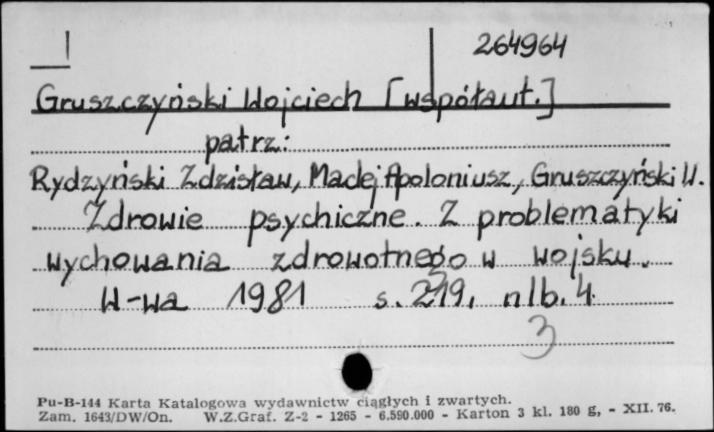 264964
Gruszczyński Wojciech [współaut.]
patrz:
Rydzyński Zdzisław, Maciej Apoloniusz, Gruszczyński W.
Zdrowie psychiczne. Z problematyki
wychowania zdrowotnego w wojsku.
W-wa 1981 s. 219, nlb. 4.
3
Pu-B-144 Karta Katalogowa wydawnictw ciągłych i zwartych.
Zam. 1643/DW/On. W.Z.Graf. Z-2 - 1265 - 6.590.000 - Karton 3 kl. 180 g, - XII. 76.